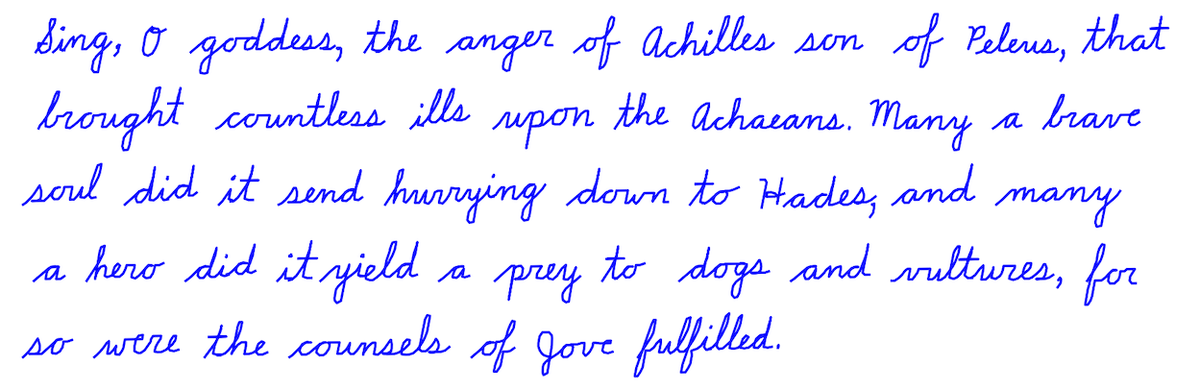 Sing, O goddess, the anger of Achilles son of Peleus, that
brought countless ills upon the Achaeans. Many a brave
soul did it send hurrying down to Hades, and many
a hero did it yield a prey to dogs and vultures, for
so were the counsels of Jove fulfilled.